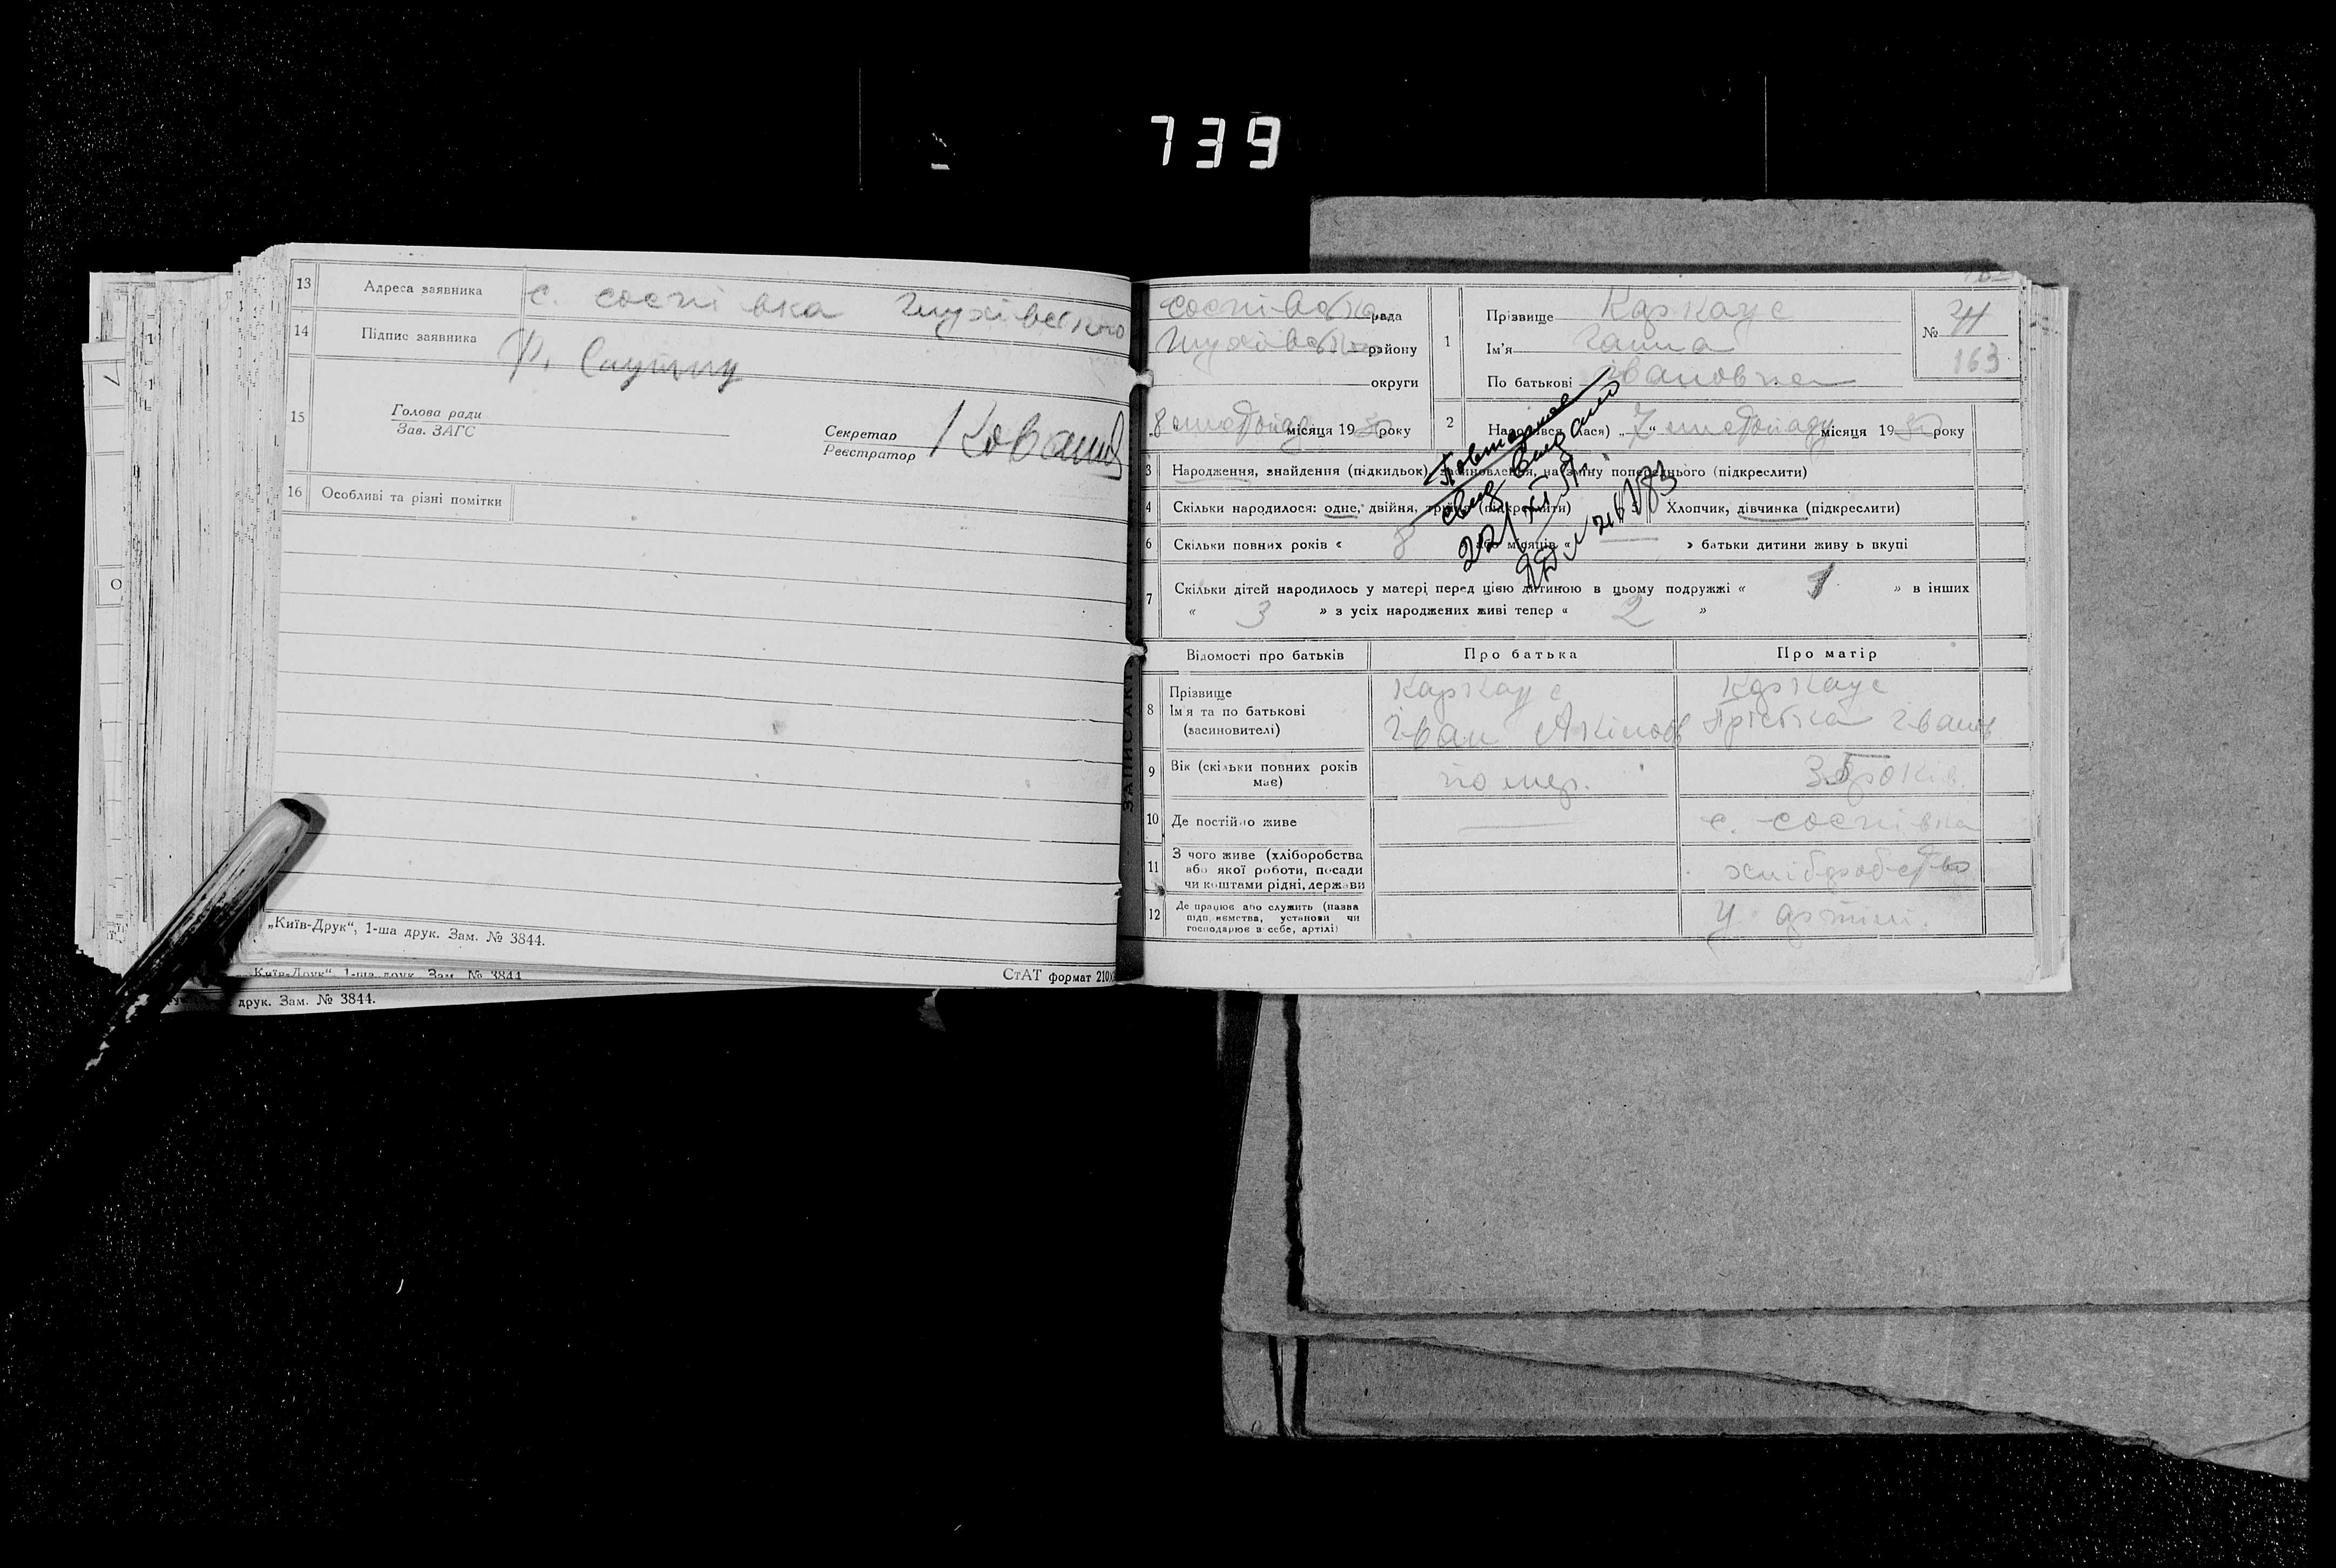 739
13 Адреса заявника с. соснівка глухівсько
14 Підпис заявника
15 Голова ради
Зав. ЗАГС
Секретар
Реєстратор
16 Особливі та різні помітки
„Київ-Друк“, 1-ша друк. Зам. № 3844.
„Київ-Друк“, 1-ша друк. Зам. № 3844
СтАТ формат 210
друк. Зам. № 3844.
ЗАПИС АКТ
рада
району
округи
8 листопад місяця 1930 року
1 Прізвище Каркаус
Ім'я Ганна
По батькові Івановна
№ 163
2 Народився (лася) „7“ листопаду місяця 1930 року
3 Народження, знайдення (підкидьок), засиновлення, на зміну попереднього (підкреслити)
4 Скільки народилося: одне, двійня, трійня (підкреслити) 5 Хлопчик, дівчинка (підкреслити)
Повторное
свид выдано
6 Скільки повних років « 8 » або місяців « — » батьки дитини живуть вкупі
7 Скільки дітей народилось у матері перед цією дитиною в цьому подружжі « 1 » в інших
« 3 » з усіх народжених живі тепер « 2 »
Відомості про батьків Про батька Про матір
8 Прізвище Каркаус Каркаус
Ім'я та по батькові Іван Іванов
(засиновителі)
9 Вік (скільки повних років має) помер. 35 років
10 Де постійно живе — с. соснівка
11 З чого живе (хліборобства або якої роботи, посади чи коштами рідні, держави хліборобство
12 Де працює або служить (назва підприємства, установи чи господарює в себе, артілі) у артілі.